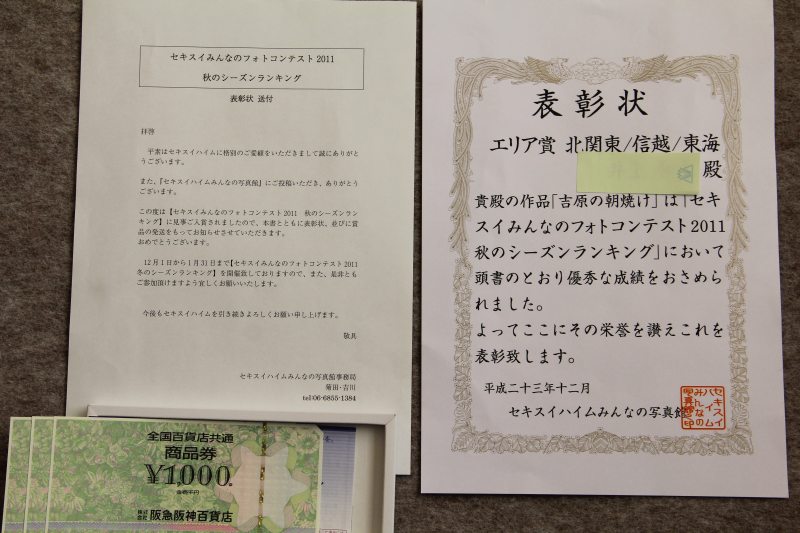 セキスイみんなのフォトコンテスト2011
秋のシーズンランキング
表彰状 送付
拝啓
平素はセキスイハイムに格別のご愛顧をいただきまして誠にありがと
うございます。
また、『セキスイハイムみんなの写真館』にご投稿いただき、ありがとう
ございます。
この度は【セキスイみんなのフォトコンテスト2011 秋のシーズンラン
キング】に見事ご入賞されましたので、本書とともに表彰状、並びに賞
品の発送をもってお知らせさせていただきます。
おめでとうございます。
12月1日から1月31日まで【セキスイみんなのフォトコンテスト2011
冬のシーズンランキング】を開催致しておりますので、また、是非とも
ご参加頂けますよう宜しくお願いいたします。
今後もセキスイハイムを引き続きよろしくお願い申し上げます。
敬具
セキスイハイムみんなの写真館事務局
菊田・吉川
tel:06-6855-1384
全国百貨店共通
商品券
¥1,000
金壱千円
株式会社 阪急阪神百貨店
表彰状
エリア賞 北関東/信越/東海
殿
貴殿の作品「吉原の朝焼け」は「セキ
スイみんなのフォトコンテスト2011
秋のシーズンランキング」において
頭書のとおり優秀な成績をおさめら
れました。
よってここにその栄誉を讃えこれを
表彰致します。
平成二十三年十二月
セキスイハイムみんなの写真館
セキスイ
ハイム
みんなの
写真館印